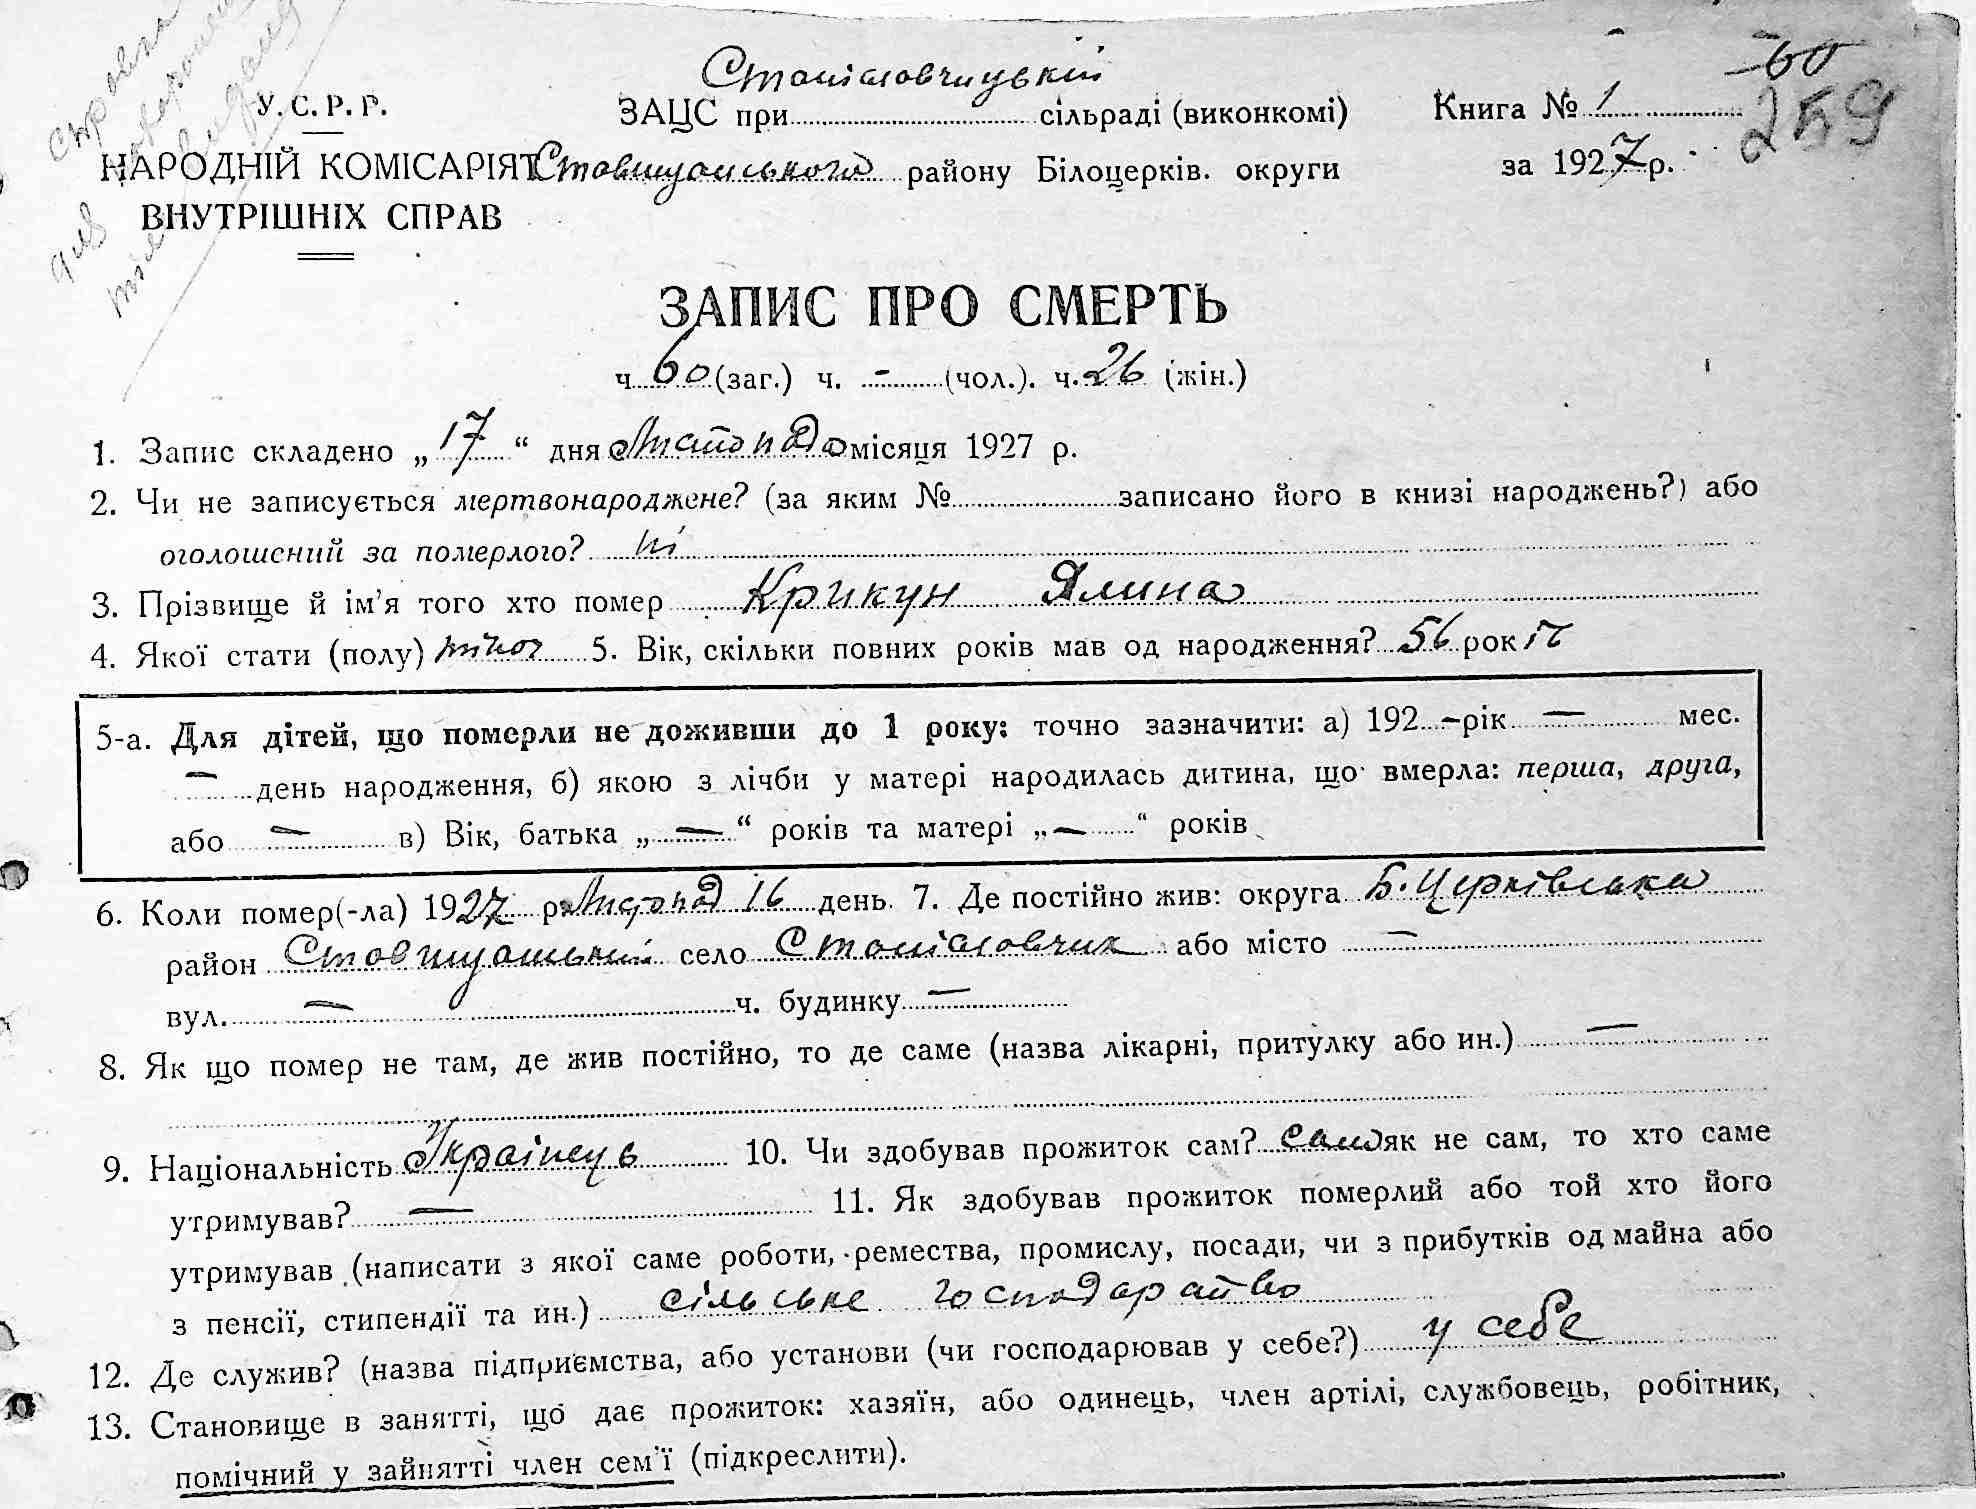 справка
для
60
259
Станіславчицькій
У. С. Р. Р.
ЗАЦС при сільраді (виконкомі) Книга № 1
НАРОДНІЙ КОМІСАРІЯТ Ставищанського району Білоцерків. округи за 1927 р.
ВНУТРІШНІХ СПРАВ
ЗАПИС ПРО СМЕРТЬ
ч. 60 (заг.) ч. - (чол.). ч. 26 (жін.)
1. Запис складено „ 17 “ дня Листопада місяця 1927 р.
2. Чи не записується мертвонароджене? (за яким № записано його в книзі народжень?) або
оголошений за померлого? ні
3. Прізвище й ім’я того хто помер Крикун Ялина
4. Якої стати (полу) жіноч 5. Вік, скільки повних років мав од народження? 56 рок ів
5-а. Для дітей, що померли не доживши до 1 року: точно зазначити: а) 192 – рік — мес.
— день народження, б) якою з лічби у матері народилась дитина, що вмерла: перша, друга,
або — в) Вік, батька „ — “ років та матері „ — “ років
6. Коли помер(-ла) 1927 р. Листопад 16 день. 7. Де постійно жив: округа Б. Церківська
район Ставищанський село Станіславчик або місто —
вул. — ч. будинку —
8. Як що помер не там, де жив постійно, то де саме (назва лікарні, притулку або ин.) —
9. Національність Українець 10. Чи здобував прожиток сам? сама як не сам, то хто саме
утримував? — 11. Як здобував прожиток померлий або той хто його
утримував (написати з якої саме роботи, ремества, промислу, посади, чи з прибутків од майна або
з пенсії, стипендії та ин.) сільське господарство
12. Де служив? (назва підприємства, або установи (чи господарював у себе?) у себе
13. Становище в занятті, що дає прожиток: хазяїн, або одинець, член артілі, службовець, робітник,
помічний у зайнятті член сем’ї (підкреслити).